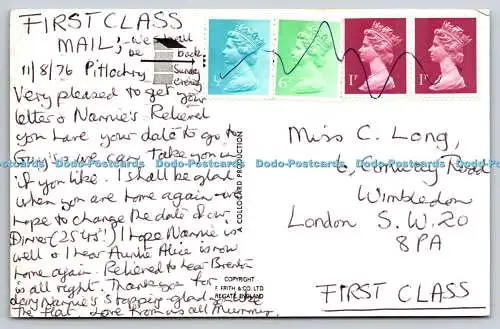 FIRST CLASS
MAIL; we shall
be back
Sunday
evening
11/8/76 Pitlochry
Very pleased to get your
letter & Nannie's. Relieved
you have your date to go to
Guy's & we can take you in
if you like. I shall be glad
when you are home again - we
hope to change the date of our
Dinner (25th!) I hope Nannie is
well & I hear Auntie Alice is now
home again. Relieved to hear
is all right. Thank you for
Nannie's stopping glad
the flat. Love from us all Mummy
A COLLOCARD PRODUCTION
COPYRIGHT
F. FRITH & CO. LTD
REIGATE, ENGLAND
1P
1P
Miss C. Long,
6, Conway Road
Wimbledon
London S.W.20
8PA
FIRST CLASS
Dodo-Postcards Dodo-Postcards Dodo-Postcards Dodo-Postcards Dodo-Postcards Dodo-Postcards